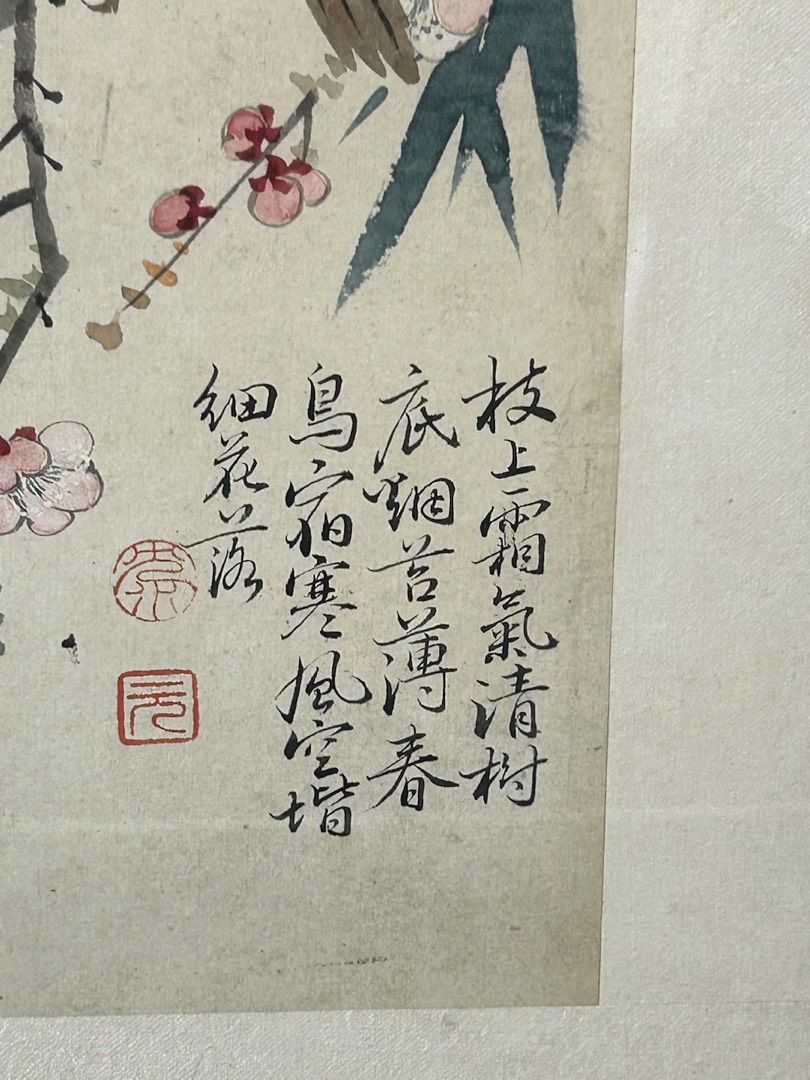 枝上霜氣清樹
底烟苔薄春
鳥宿寒風空堦
細花落